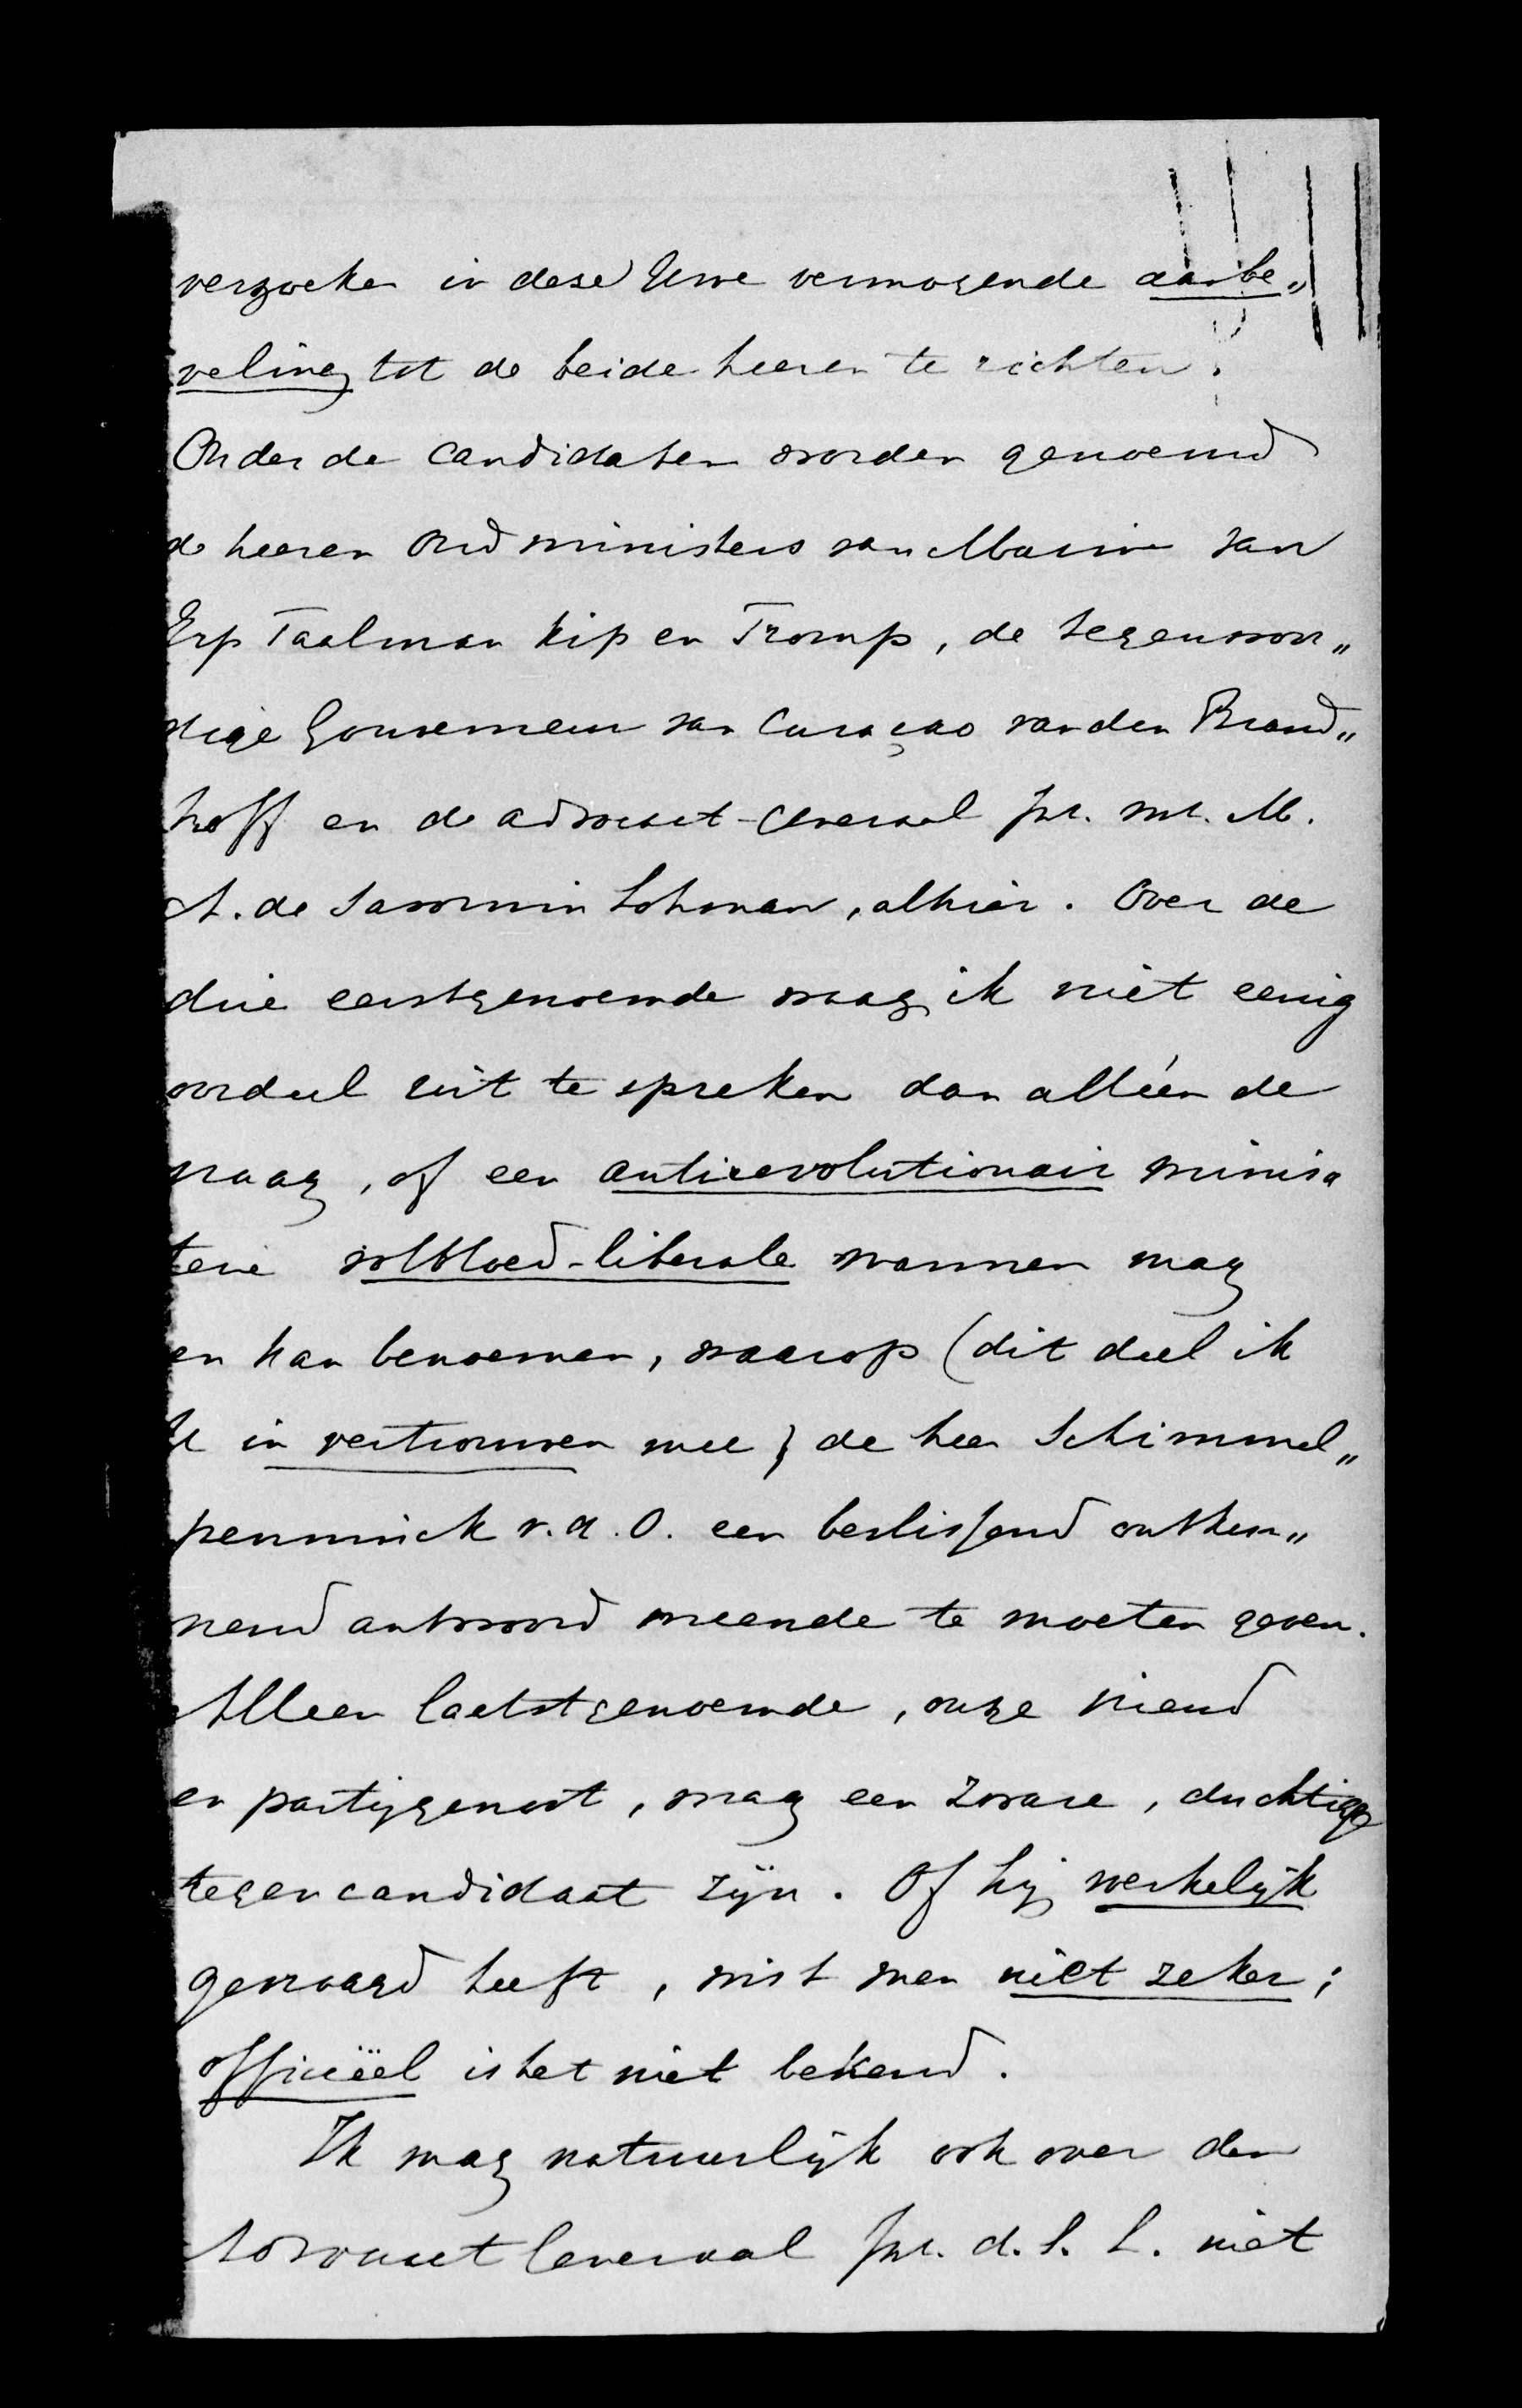 verzoeken in deze Uwe vermogende aanbe„
veling tot de beide heeren te richten.
Onder de candidaten worden genoemd
de heeren Oud ministers van Marine van
Erp Taalman Kip en Tromp, de tegenwoor„
dige Gouverneur van Curaçao van den Brand„
hoff en de advocaat-Generaal jhr. mr. M.
A. de Savornin Lohman, alhier. Over de
drie eerstgenoemde waag ik niet eenig
oordeel uit te spreken dan alléén de
vraag, of een antirevolutionair minis„
terie volbloed-liberale mannen mag
en kan benoemen, waarop (dit deel ik
U in vertrouwen mee) de heer Schimmel„
penninck v.d.O. een beslissend ontken„
nend antwoord meende te moeten geven.
Alleen laatstgenoemde, onze vriend
en partijgenoot, mag een zware, duchtige
tegencandidaat zijn. Of hij werkelijk
gevraagd heeft, wist men niet zeker;
officiëel is het niet bekend.
Ik mag natuurlijk ook over den
Advocaat Generaal jhr. d. S. L. niet